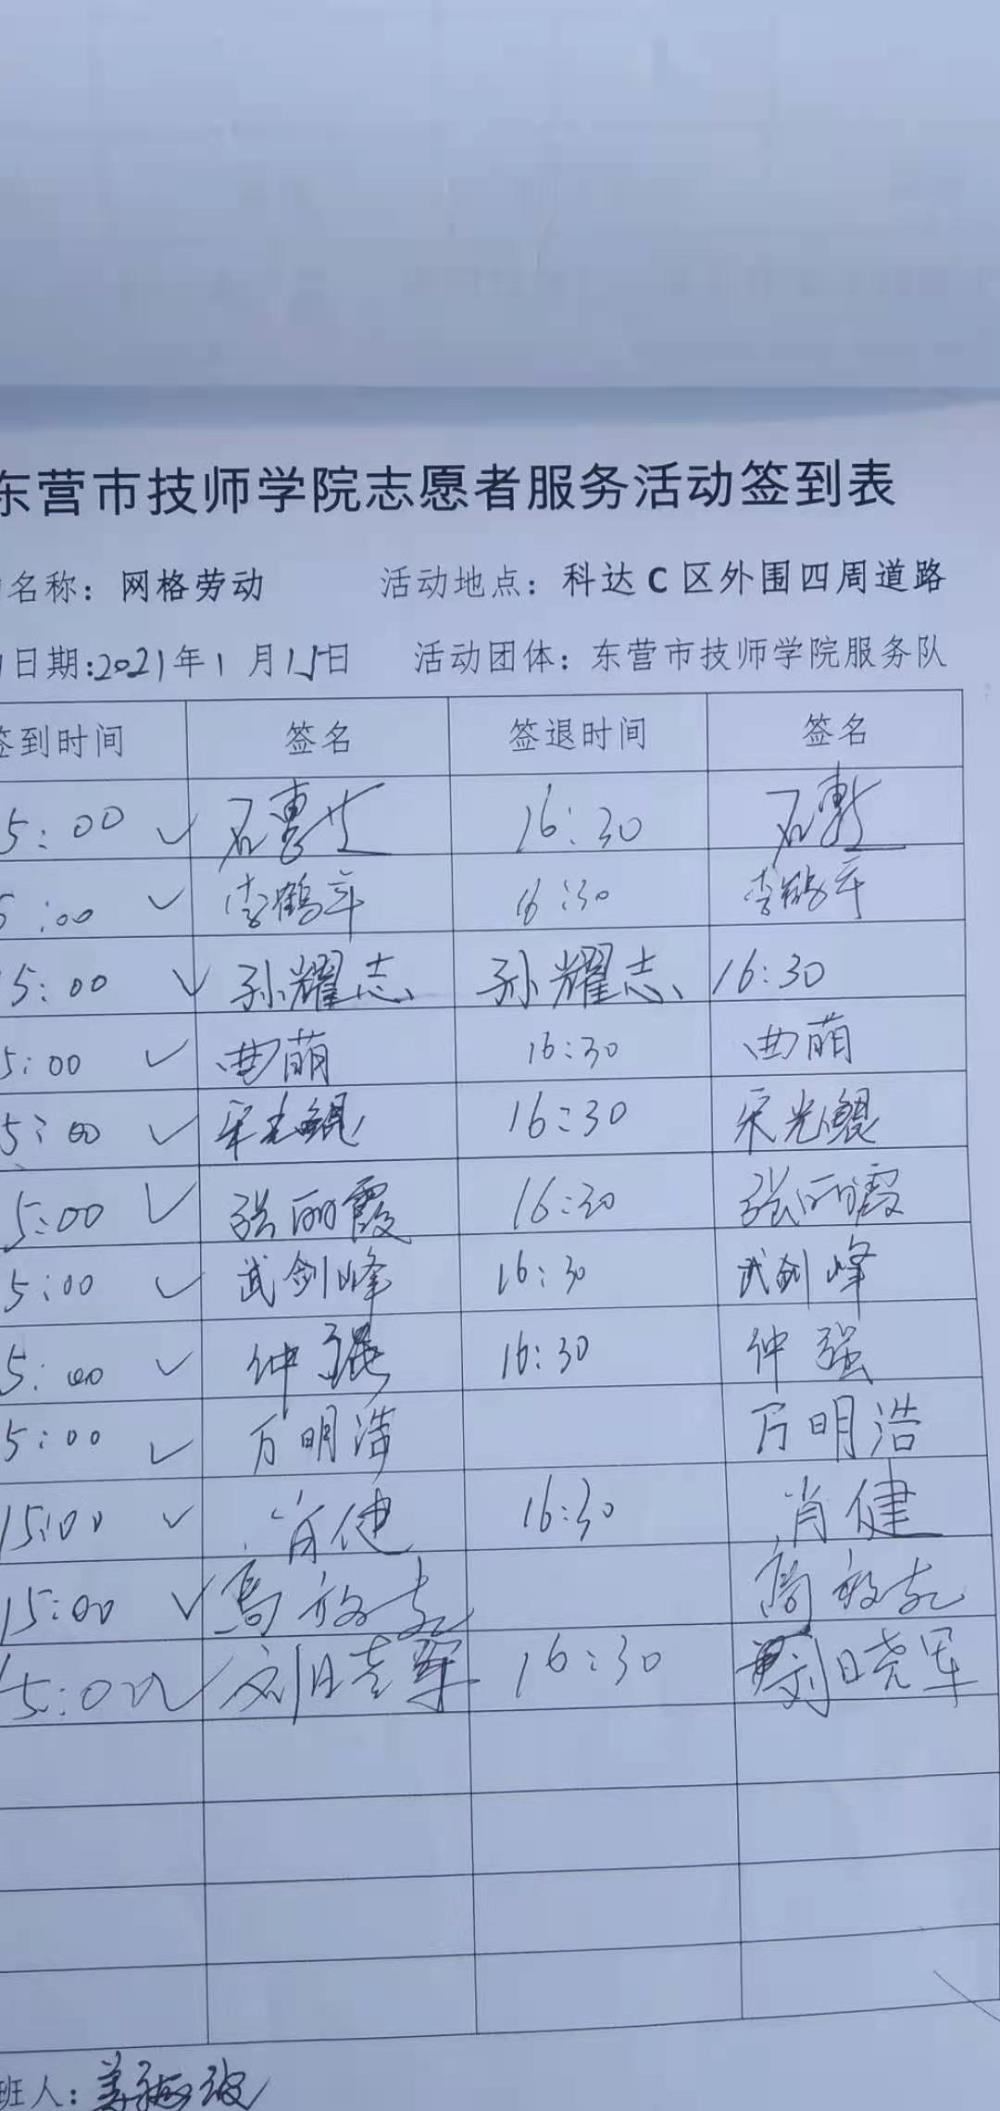 东营市技师学院志愿者服务活动签到表
名称：网格劳动 活动地点：科达C区外围四周道路
日期:2021年1月15日 活动团体：东营市技师学院服务队
签到时间 签名 签退时间 签名
5:00 ✓ 16:30
5:00 ✓ 李鹤年 16:30 李鹤年
15:00 ✓ 孙耀志 孙耀志 16:30
5:00 ✓ 曲萌 16:30 曲萌
5:00 ✓ 宋光鲲 16:30 宋光鲲
5:00 ✓ 张丽霞 16:30 张丽霞
5:00 ✓ 武剑峰 16:30 武剑峰
5:00 ✓ 仲强 16:30 仲强
5:00 ✓ 万明浩 万明浩
15:00 ✓ 肖健 16:30 肖健
15:00 ✓ 高
15:00 ✓ 刘晓军 16:30 刘晓军
班人：姜